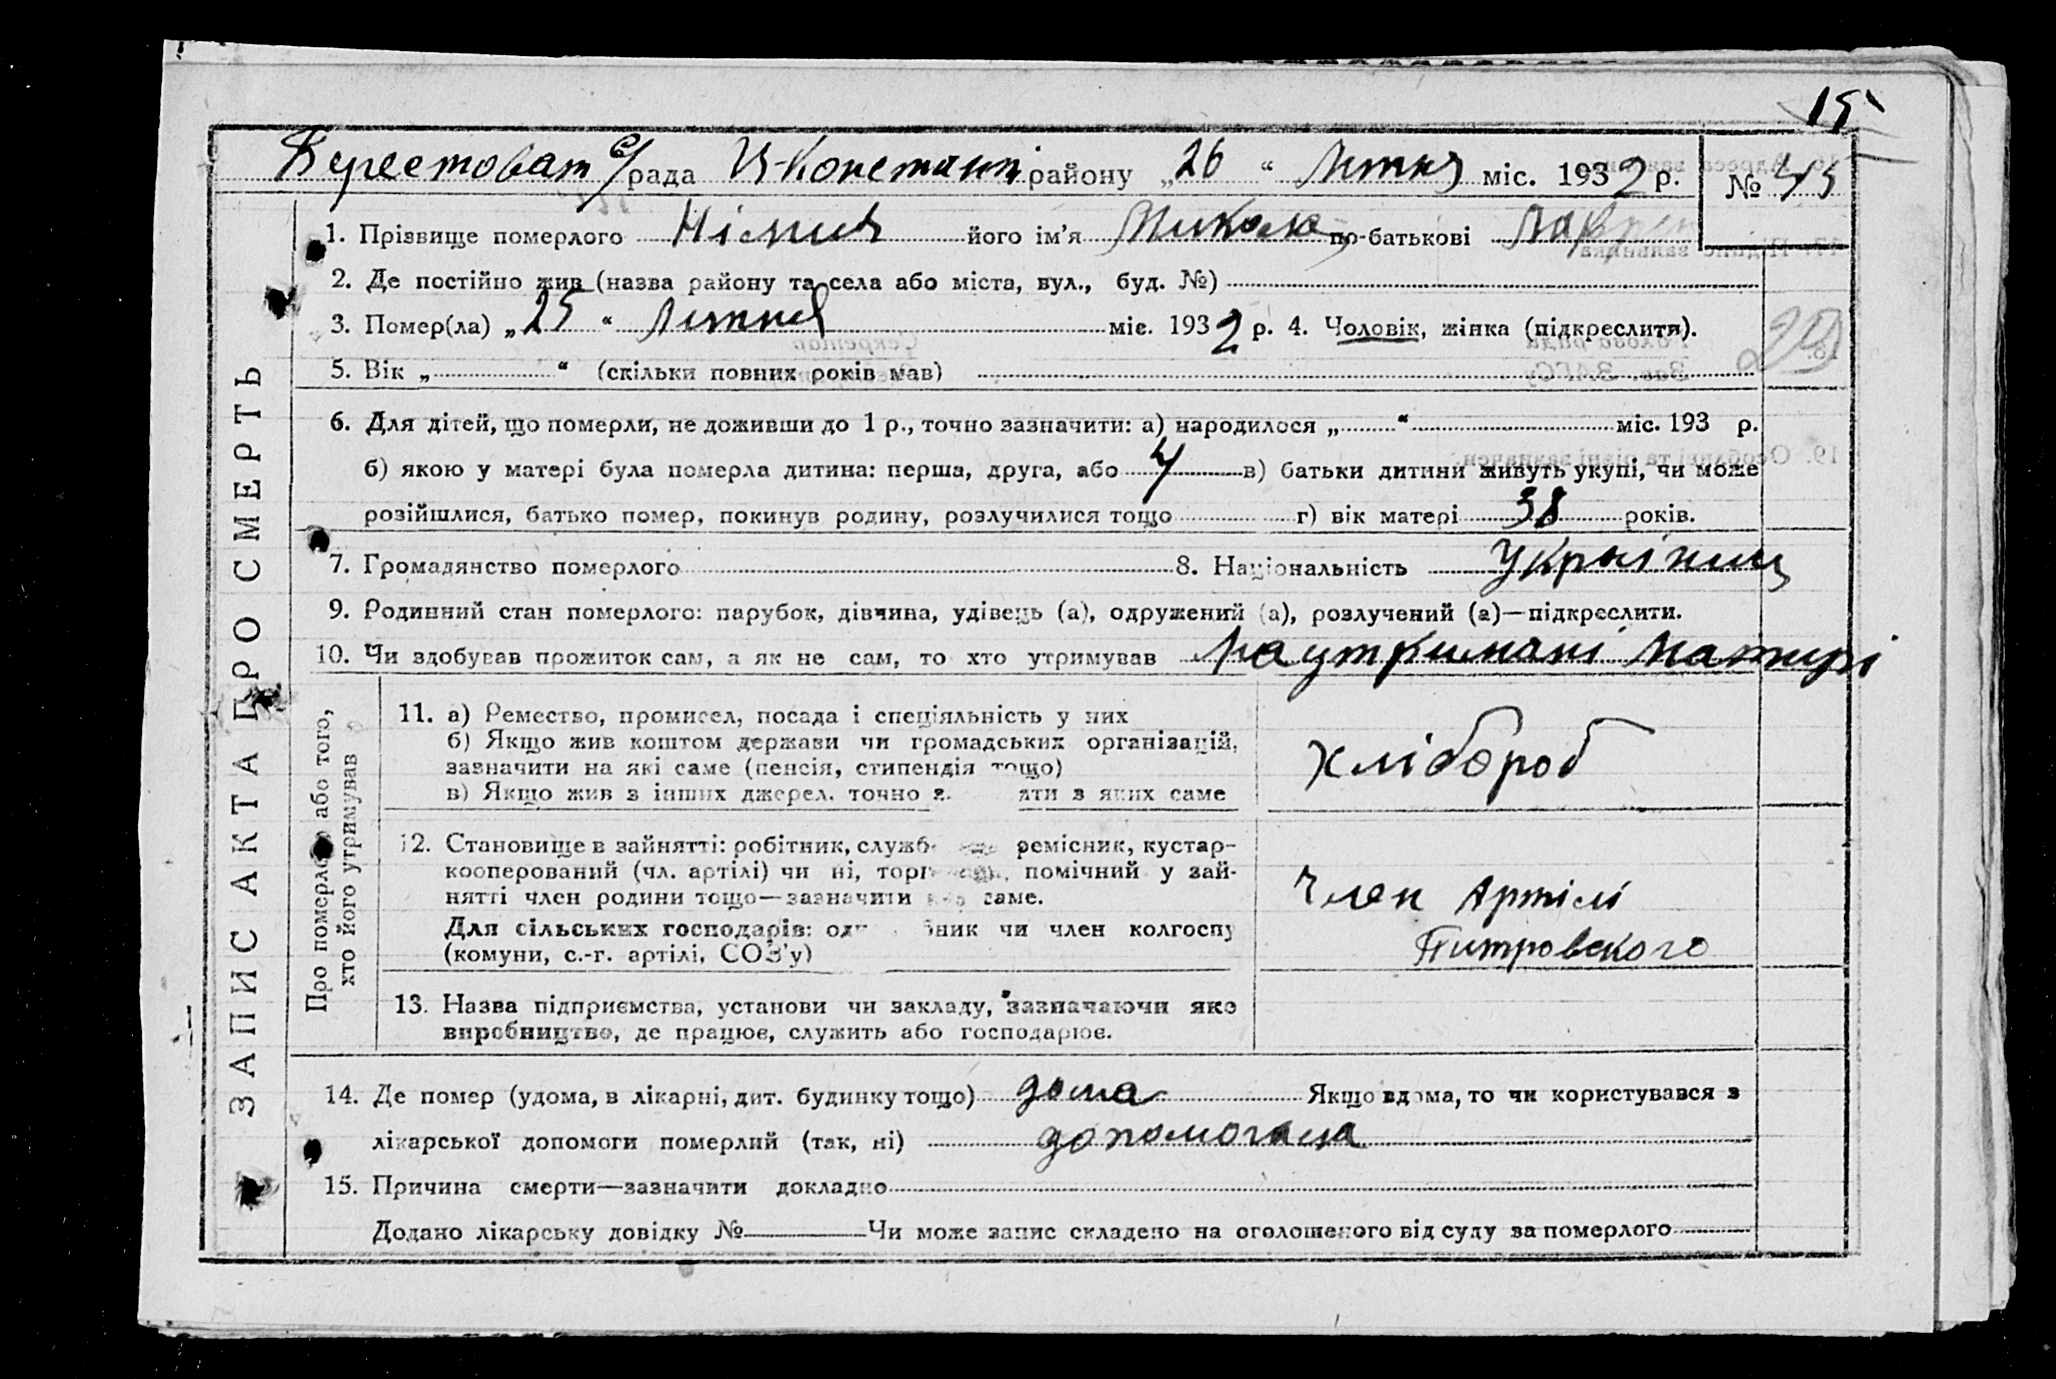 15
Берестоват с/рада Ц-Констант району „26“ Литня міс. 1932 р. № 45
1. Прізвище померлого його ім'я Микола по-батькові Лаврен
2. Де постійно жив (назва району та села або міста, вул., буд. №)
3. Помер(ла) „25“ Литня міс. 1932 р. 4. Чоловік, жінка (підкреслити).
5. Вік „ “ (скільки повних років мав)
6. Для дітей, що померли, не доживши до 1 р., точно зазначити: а) народилося „ “ міс. 193 р.
б) якою у матері була померла дитина: перша, друга, або 4 в) батьки дитини живуть укупі, чи може
розійшлися, батько помер, покинув родину, розлучилися тощо г) вік матері 38 років.
7. Громадянство померлого 8. Національність Украіниц
9. Родинний стан померлого: парубок, дівчина, удівець (а), одружений (а), розлучений (а)—підкреслити.
10. Чи здобував прожиток сам, а як не сам, то хто утримував На утримані Матирі
ЗАПИС АКТА ПРО СМЕРТЬ
Про померлого або того,
хто його утримував
11. а) Ремество, промисел, посада і спеціяльність у них
б) Якщо жив коштом держави чи громадських організацій,
зазначити на які саме (пенсія, стипендія тощо)
в) Якщо жив з інших джерел, точно з. яти з яких саме
Хлібороб
12. Становище в зайнятті: робітник, служб ремісник, кустар-
кооперований (чл. артілі) чи ні, торг помічний у зай-
нятті член родини тощо—зазначити саме.
Для сільських господарів: од ник чи член колгоспу
(комуни, с.-г. артілі, СОЗ'у)
Член Артілі
Питровского
13. Назва підприємства, установи чи закладу, зазначаючи яке
виробництво, де працює, служить або господарює.
14. Де помер (удома, в лікарні, дит. будинку тощо) дома Якщо вдома, то чи користувався з
лікарської допомоги померлий (так, ні)
15. Причина смерти—зазначити докладно
Додано лікарську довідку № Чи може запис складено на оголошеного від суду за померлого